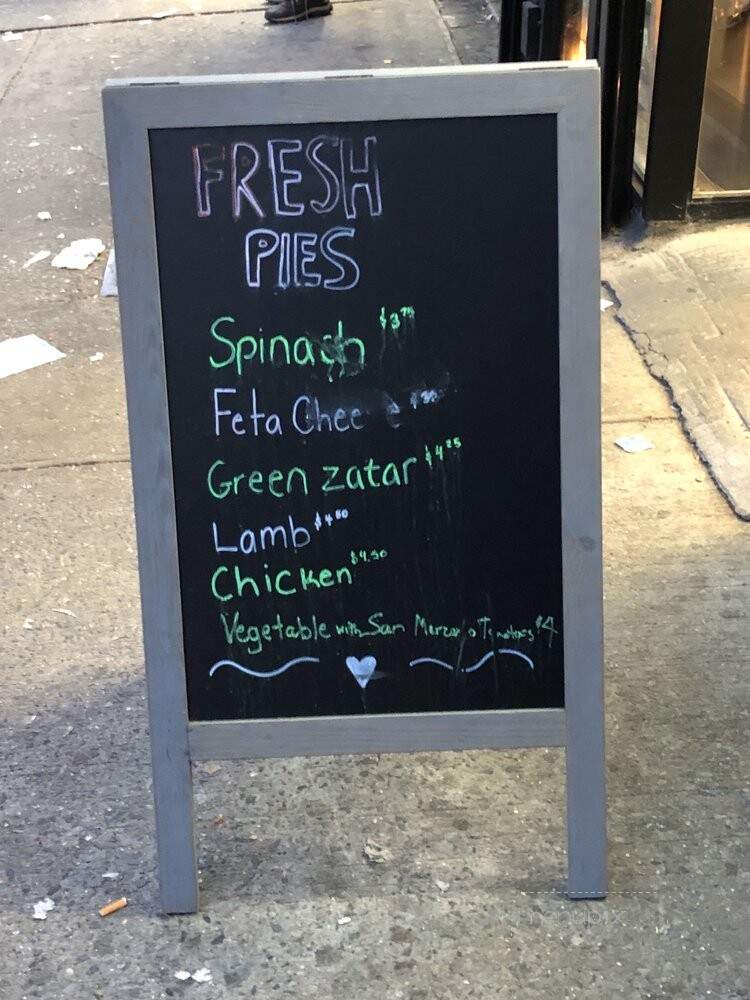 FRESH
PIES
Spinach $3.75
Feta Cheese
Green zatar $4.25
Lamb $4.50
Chicken $4.50
Vegetable with San Marzano Tomatoes $4